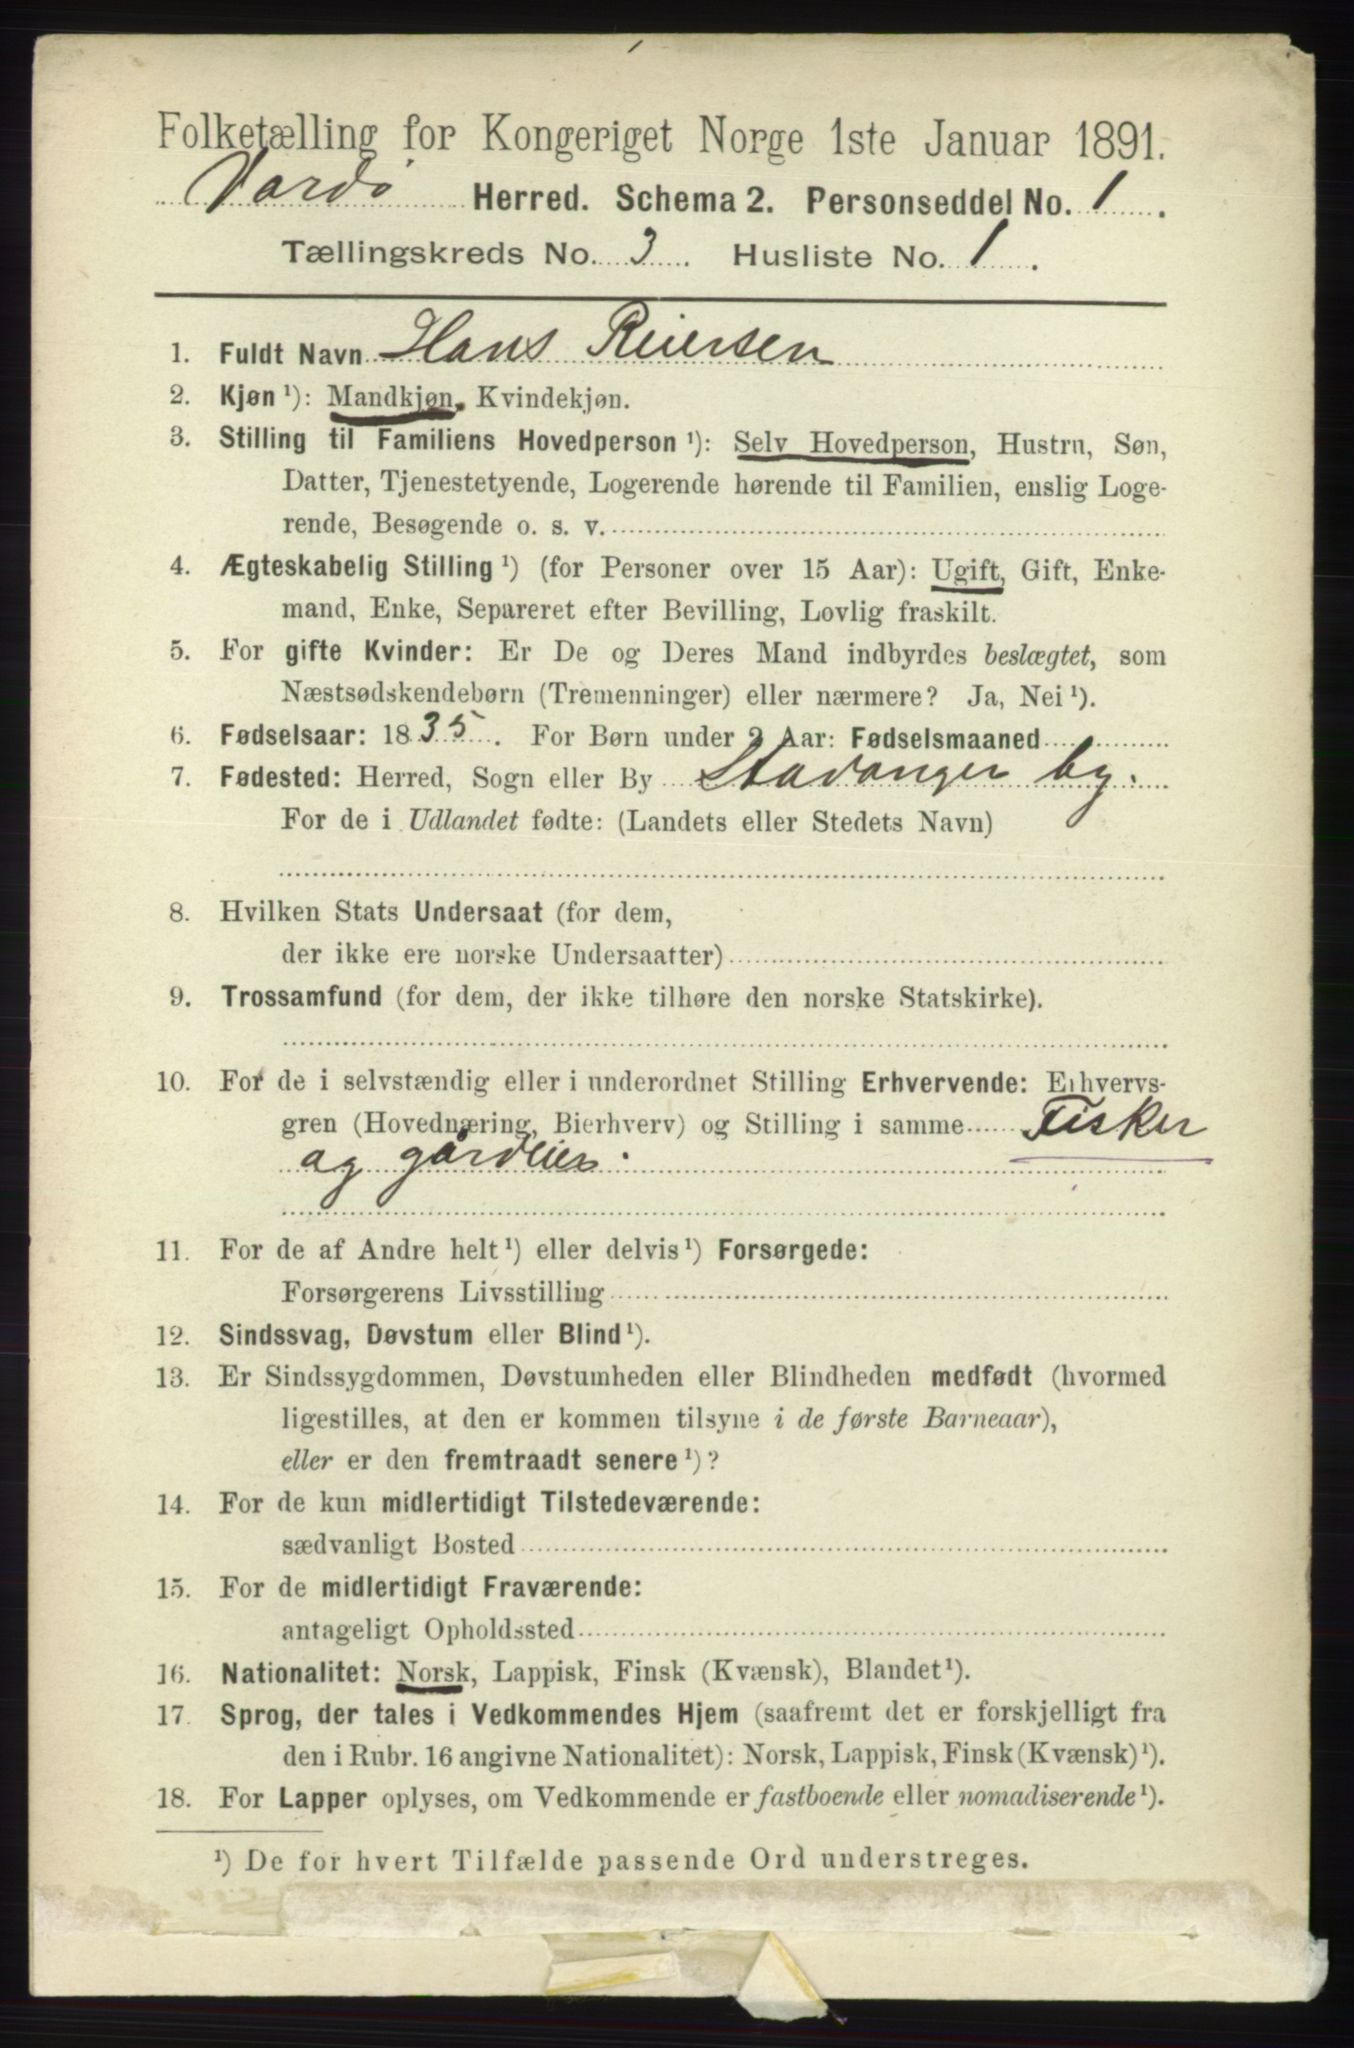 Folketælling for Kongeriget Norge 1ste Januar 1891.
Vardø Herred. Schema 2. Personseddel No. 1.
Tællingskreds No. 3. Husliste No. 1.
1. Fuldt Navn Hans Reiersen
2. Kjøn ¹): Mandkjøn, Kvindekjøn.
3. Stilling til Familiens Hovedperson ¹): Selv Hovedperson, Hustru, Søn,
Datter, Tjenestetyende, Logerende hørende til Familien, enslig Loge-
rende, Besøgende o. s. v.
4. Ægteskabelig Stilling ¹) (for Personer over 15 Aar): Ugift, Gift, Enke-
mand, Enke, Separeret efter Bevilling, Lovlig fraskilt.
5. For gifte Kvinder: Er De og Deres Mand indbyrdes beslægtet, som
Næstsødskendebørn (Tremenninger) eller nærmere? Ja, Nei ¹).
6. Fødselsaar: 1835. For Børn under 2 Aar: Fødselsmaaned
7. Fødested: Herred, Sogn eller By Stavanger by.
For de i Udlandet fødte: (Landets eller Stedets Navn)
8. Hvilken Stats Undersaat (for dem,
der ikke ere norske Undersaatter)
9. Trossamfund (for dem, der ikke tilhøre den norske Statskirke).
10. For de i selvstændig eller i underordnet Stilling Erhvervende: Erhvervs-
gren (Hovednæring, Bierhverv) og Stilling i samme Fisker
og gårdeier.
11. For de af Andre helt ¹) eller delvis ¹) Forsørgede:
Forsørgerens Livsstilling
12. Sindssvag, Døvstum eller Blind ¹).
13. Er Sindssygdommen, Døvstumheden eller Blindheden medfødt (hvormed
ligestilles, at den er kommen tilsyne i de første Barneaar),
eller er den fremtraadt senere ¹)?
14. For de kun midlertidigt Tilstedeværende:
sædvanligt Bosted
15. For de midlertidigt Fraværende:
antageligt Opholdssted
16. Nationalitet: Norsk, Lappisk, Finsk (Kvænsk), Blandet ¹).
17. Sprog, der tales i Vedkommendes Hjem (saafremt det er forskjelligt fra
den i Rubr. 16 angivne Nationalitet): Norsk, Lappisk, Finsk (Kvænsk) ¹).
18. For Lapper oplyses, om Vedkommende er fastboende eller nomadiserende ¹).
¹) De for hvert Tilfælde passende Ord understreges.